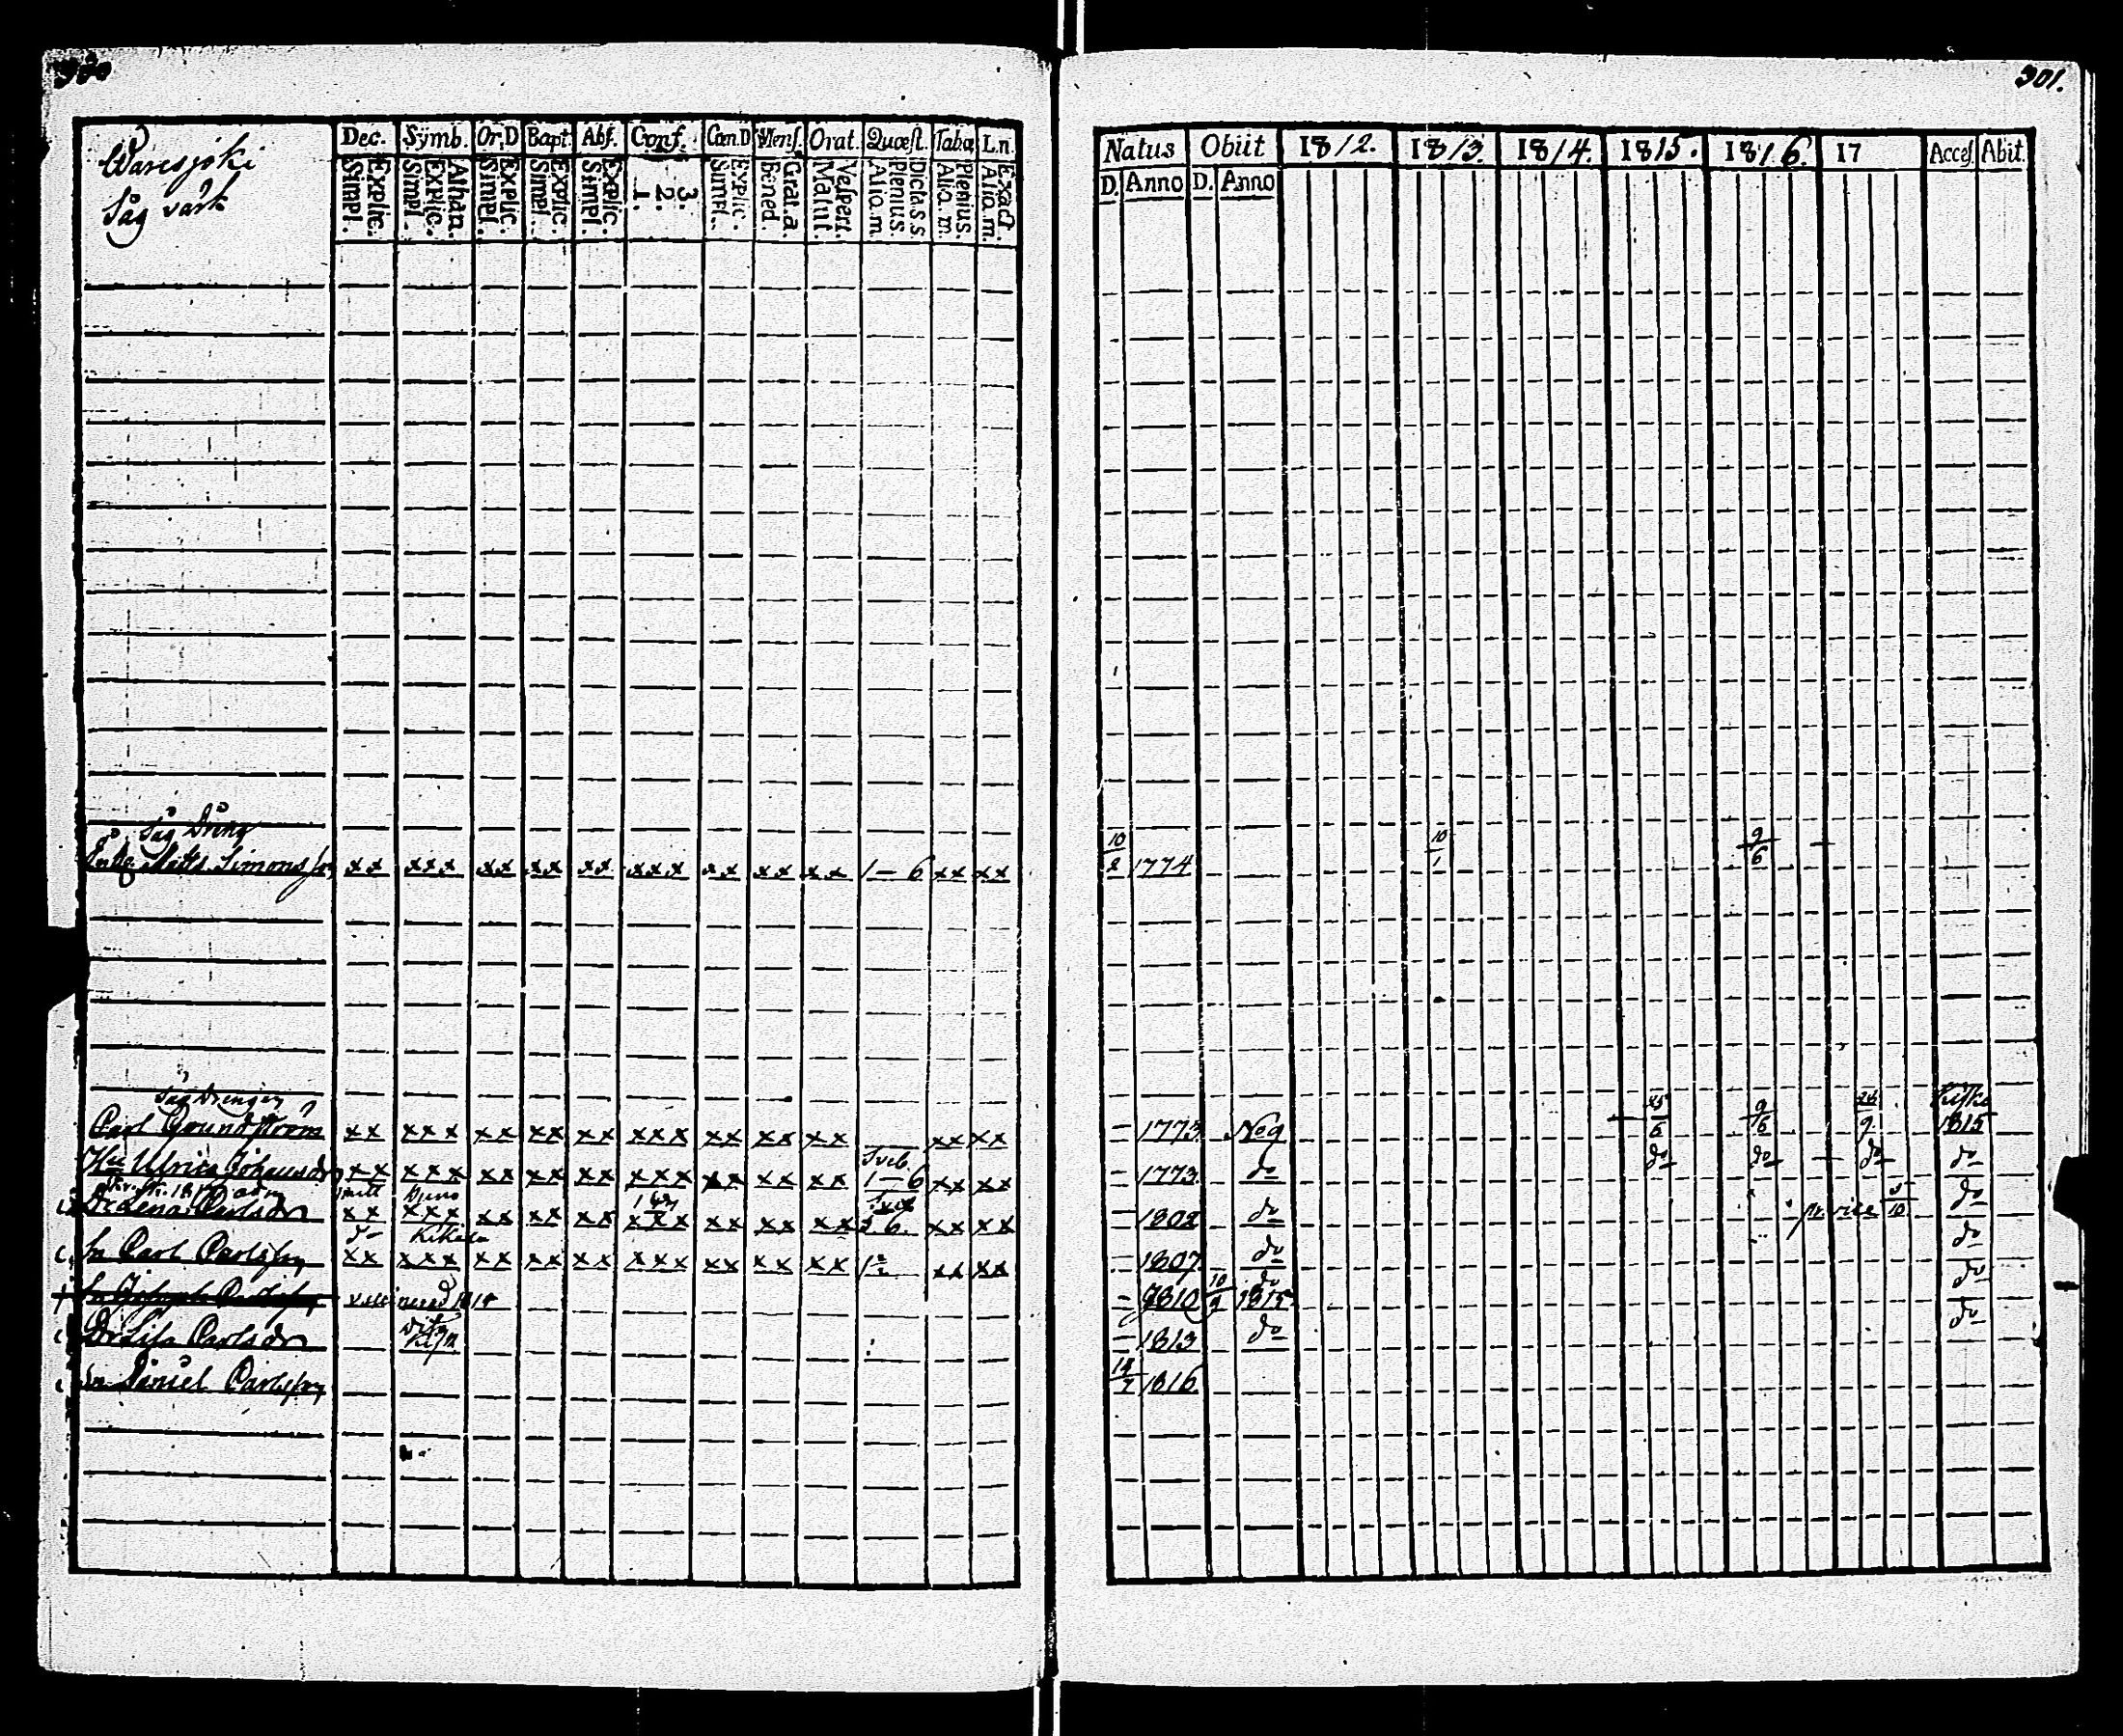 300
301.
Waresjöki
Såg värk
Dec. Symb. Or.D Bapt. Abs. Conf. Cœn.D Mens. Orat. Quæst. Tabœ L.n.
Explic. Simpl. Athan. Explic. Simpl. Explic. Simpl. Explic. Simpl. Explic. Simpl. 3. 2. 1. Explic. Simpl. Grat.a. Bened. Vespert. Matut. Dicta.s.s. Plenius. Alio.m. Plenius. Alio.m. Exact. Alio.m.
Natus Obiit 1812. 1813. 1814. 1815. 1816. 17 Acces. Abit.
D. Anno D. Anno
Såg Dräng
Matts Simonsson xx xxx xx xx xx xxx xx xx xx 1-6 xx xx 10/2 1774 10/1 9/6
Såg Drengen
Carl Grundström xx xxx xx xx xx xxx xx xx xx xx xx 1773 25/6 9/6 1815
Hu Ulrica Johansdr xx xxx xx xx xx xxx xx xx xx Sveb. 1-6 xx xx 1773 do do do do do
Dr Lena Carlsdr xx xxx xx xx xx xxx xx xx xx 2.6. xx xx 1802 do 5/10 do
Sn Carl Carlsson xx xxx xx xx xx xxx xx xx xx xx xx 1807 do do
Carlsson 1810 10/9 1815 do do
Dr Lisa Carlsdr 1813 do do
Sn Daniel Carlsson 14/7 1816